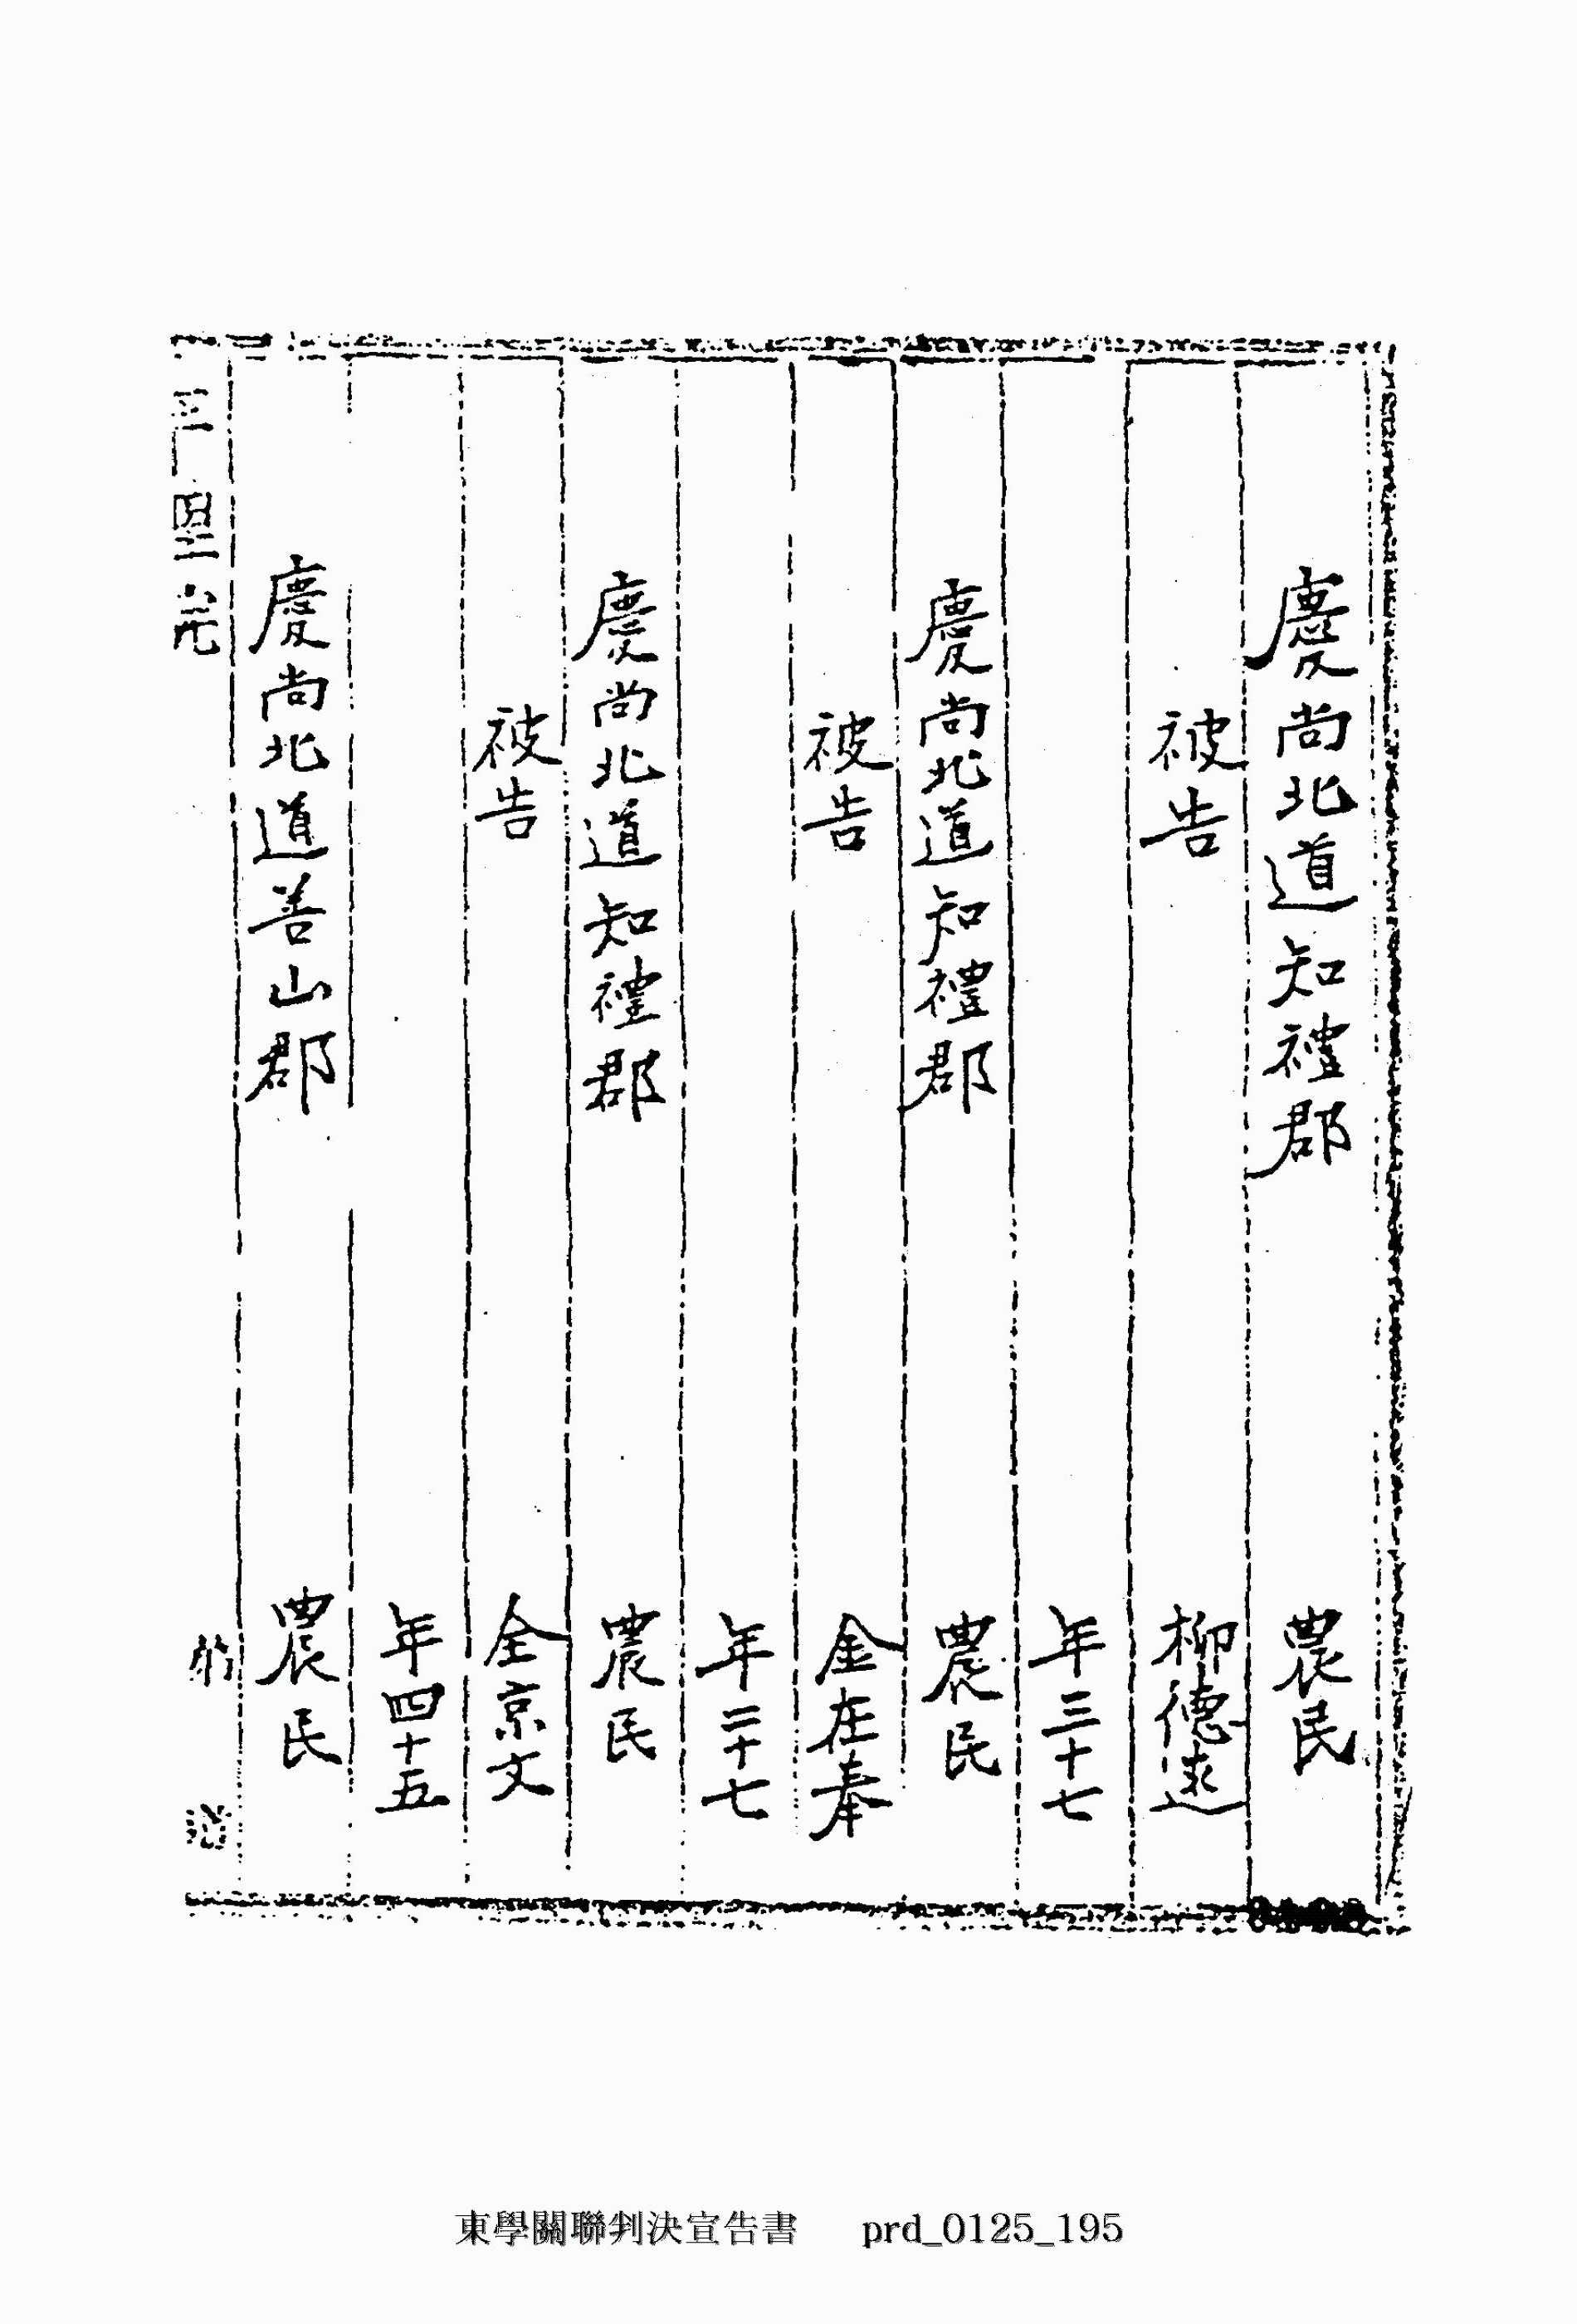 慶尚北道知禮郡 農民
被告 柳德遠
年三十七
慶尚北道知禮郡 農民
被告 金在奉
年二十七
慶尚北道知禮郡 農民
被告 全京文
年四十五
慶尚北道善山郡 農民
東學關聯判決宣告書 prd_0125_195